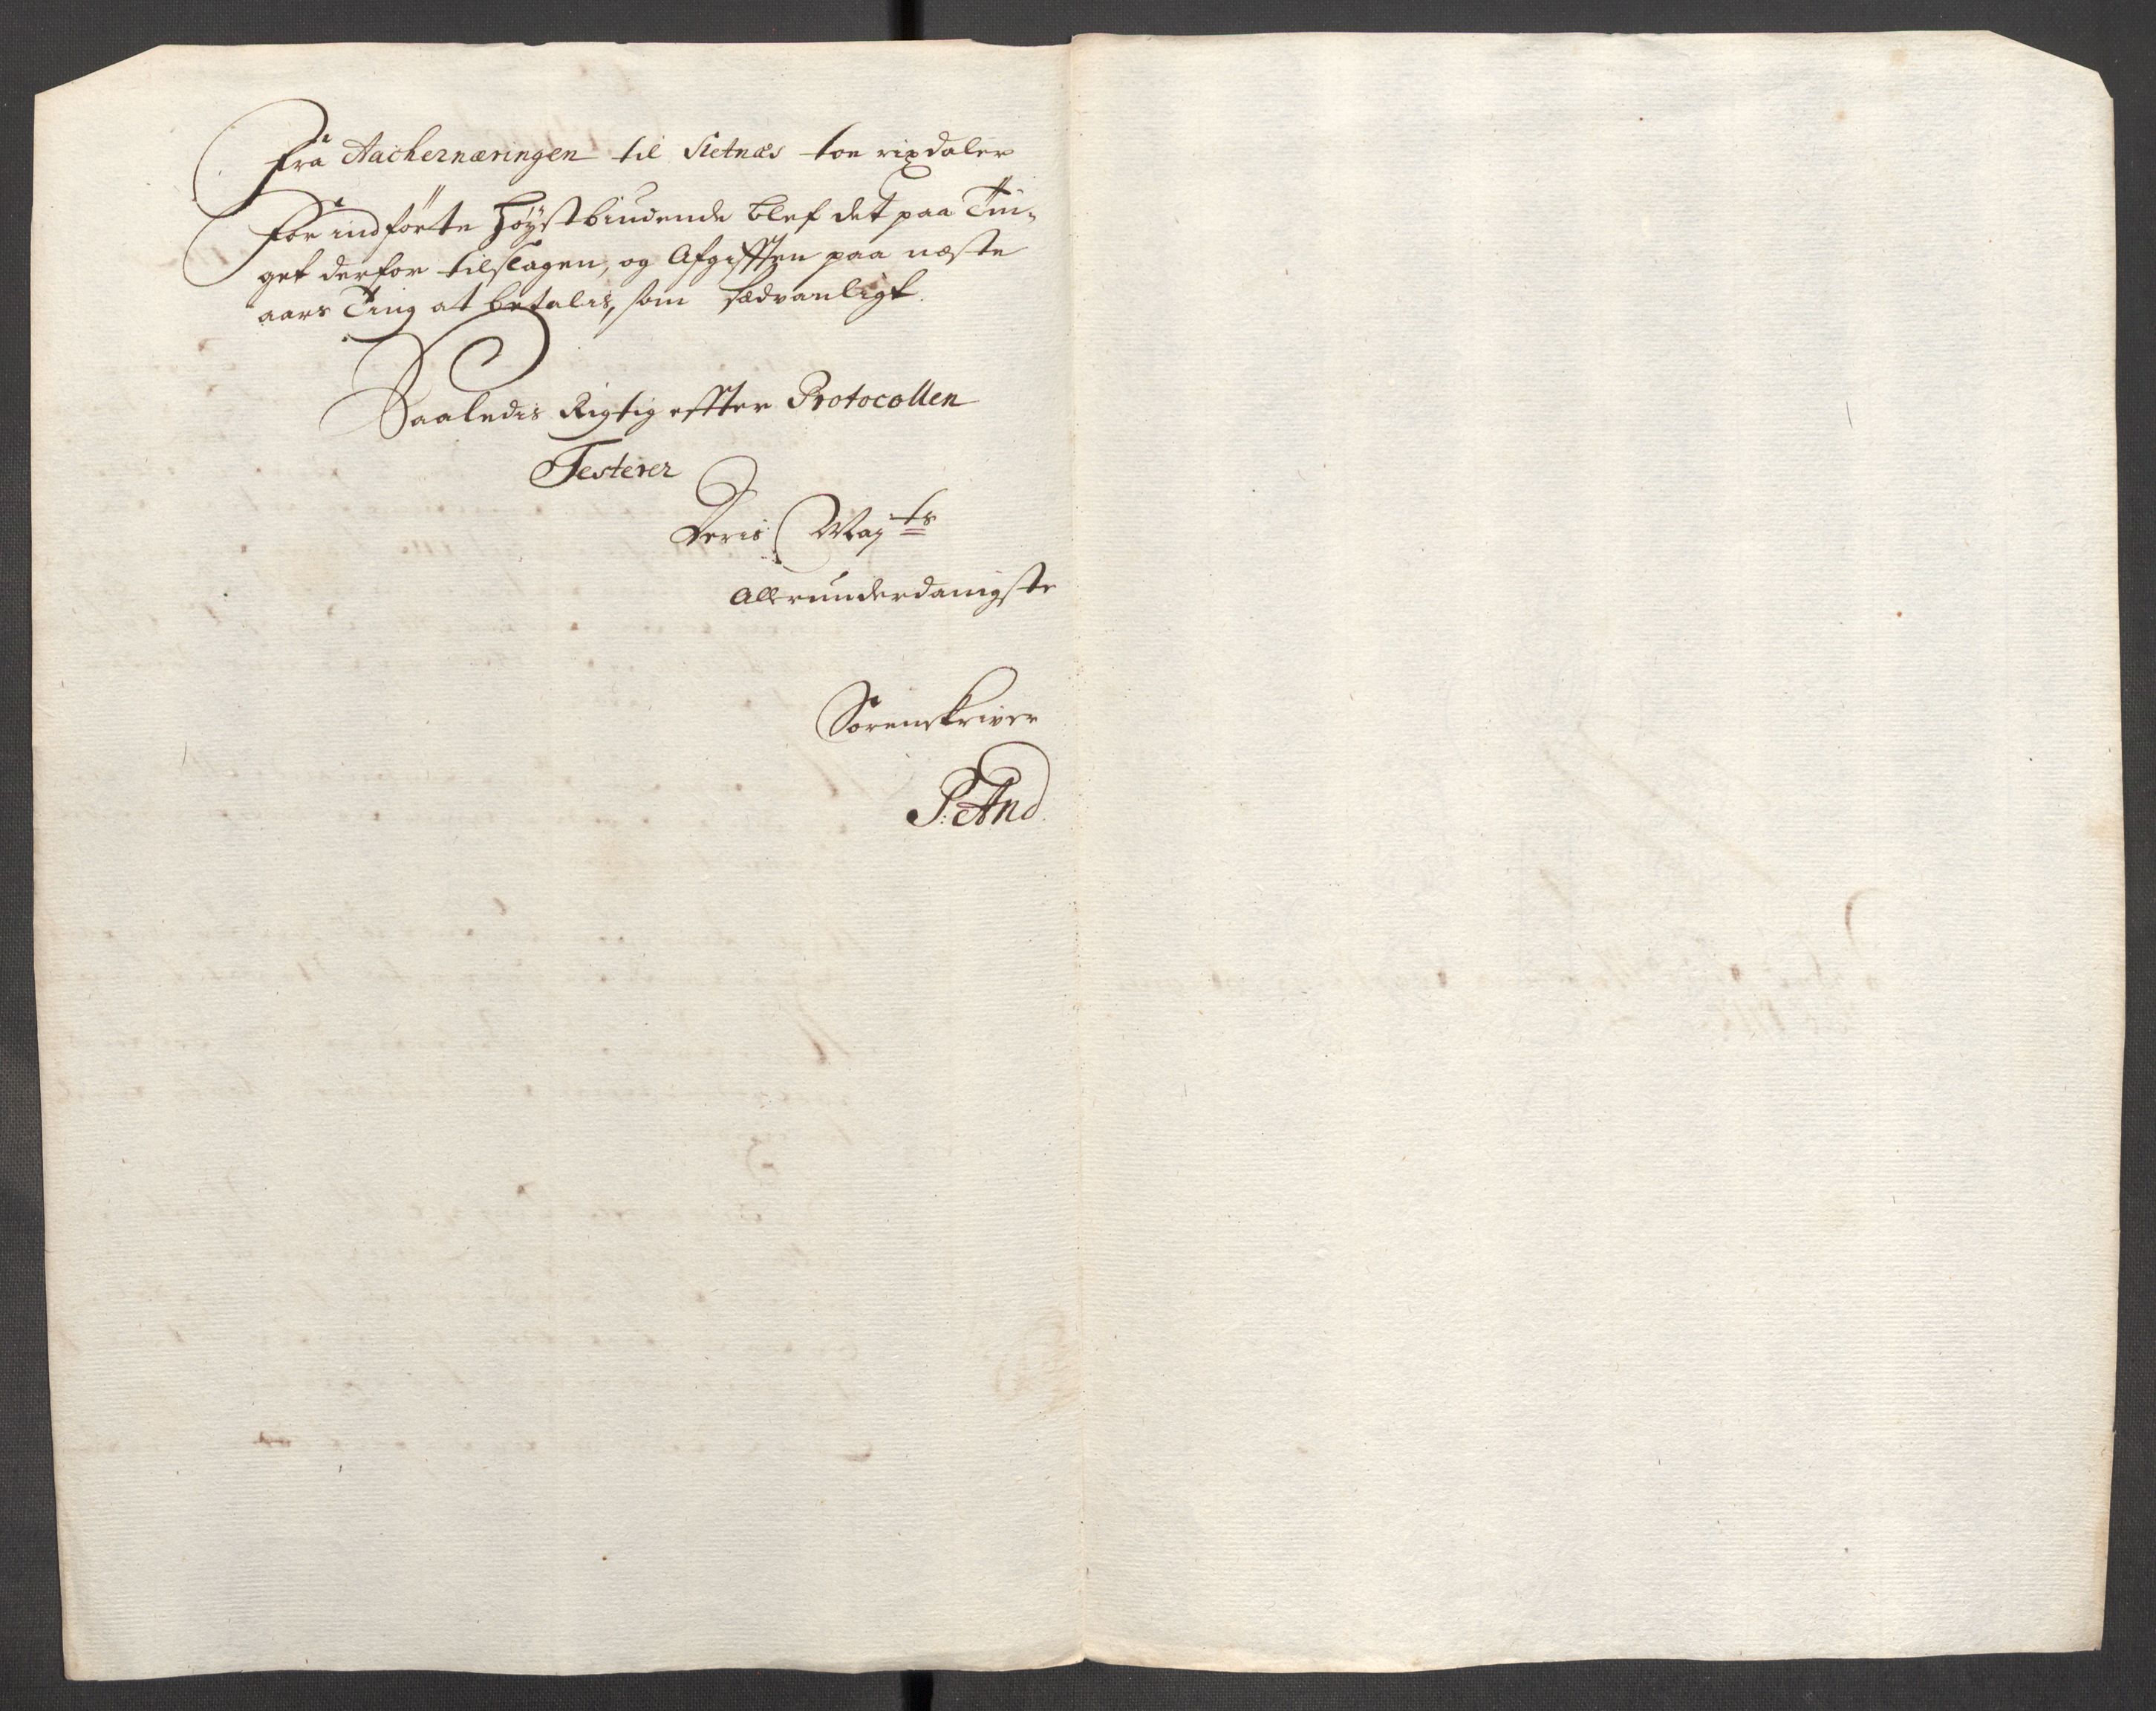 Fra Aachernæringen til Sletnæs toe rixdaler
For indførte Høystbiudende blef det paa Tin„
get derfor tilslagen, og Afgifften paa næste
aars Ting at betalis, som sædvanligt.
Saaledis Rigtig effter Protocollen
Testerer
Deris Mayts
Allerunderdanigste
Sorenskriver
P: And